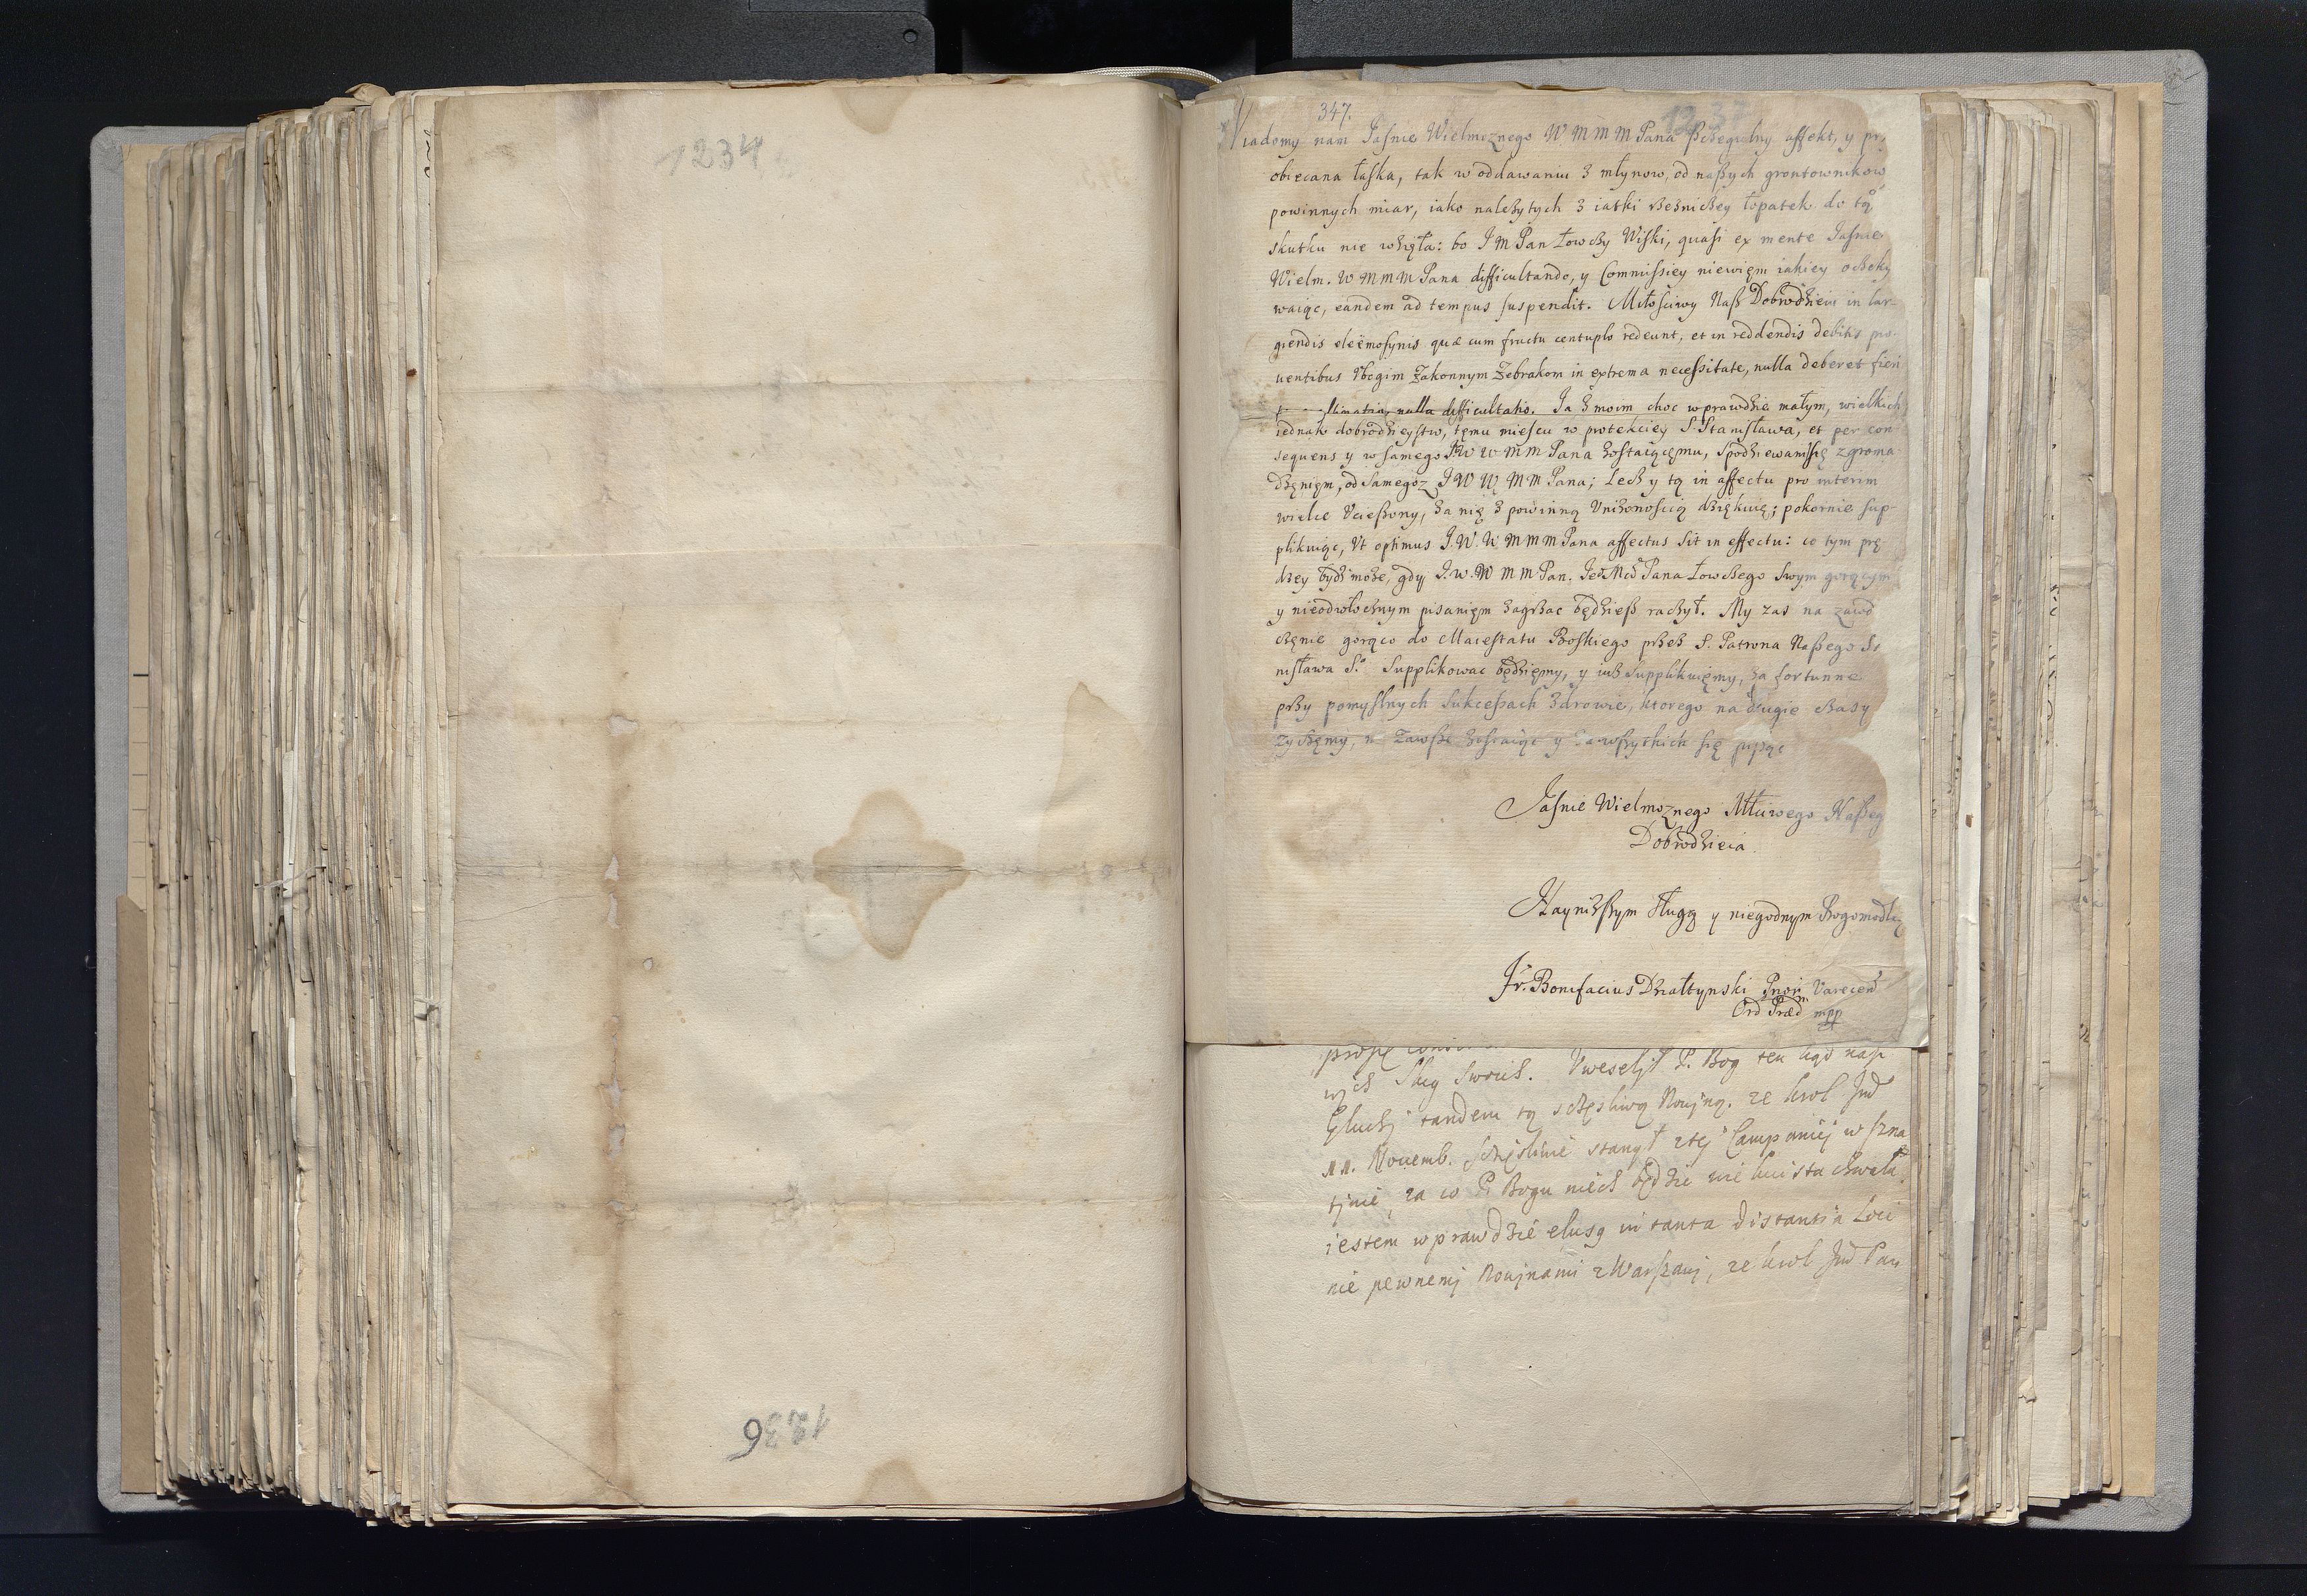 1234
1236
347.
1237
Wiadomy nam Jaśnie Wielmożnego W M M M Pana szczegulny affekt, y
obiecana łaska, tak w oddawaniu z młynow, od naszych grontownikow
powinnych miar, iako należytych z iatki rzeźniczey łopatek do tą
skutku nie wzięła: bo J M Pan Łowczy Wiski, quasi ex mente Jaśnie
Wielm. W M M M Pana difficultando, y Commissiey niewiem iakiey oczeky
waiąc, eandem ad tempus suspendit. Miłościwy Nasz Dobrodzieiu in lar-
giendis eleëmosynis quæ cum fructu centuplo redeunt, et in reddendis debitis pro-
uentibus Vbogim Zakonnym Żebrakom in extrema necessitate, nulla deberet fieri
nulla difficultatio. Ja z moim choc wprawdzie małym, wielkich
iednak dobrodzieystw, temu miescu w protekciey S. Stanisława, et per con-
sequens y w samego JW W M M Pana zostaiącemu, spodziewamsię zgroma
dzeniem, od samegoż J W W M M Pana; Lecz y tą in affectu pro interim
wielce Vcieszony, za nię z powinną Vniżonością dziękuię; pokornie sup-
plikuiąc, Vt optimus J. W. W M M M Pana affectus sit in effectu: co tym prę-
dzey bydź może, gdy J. W. W M M Pan. Je͠o Mći Pana Łowczego swym gorącym
y nieodwłocznym pisaniem zagrzac będziesz raczył. My zas na zawd
czenie gorąco do Maiestatu Boskiego przez S. Patrona Naszego St
nisława S.o Supplikowac będziemy, y iuż Supplikuiemy, za fortunne
przy pomyślnych sukcessach zdrowie, ktorego na długie czasy
życzemy, zawsze zostaiąc y wszytkich się pisząc
Jaśnie Wielmożnego Mściwego Naszeg
Dobrodzieia
Nayniższym sługą y niegodnym Bogomodlcą
Fr. Bonifacius Działtynski Prior Varecen
Ord Præd m mpp
wych sług swoich. Vweselił P. Bog ten kąd nasz
Głuchy tandem tą szczęsliwą Nowiną. ze krol Jmć
11. Nouemb. szczęsliwie stanął z tej Campaniej w szna
tynie, za co P. Bogu niech będzie wiekuista chwała.
iestem w prawdzie elusq in tanta distantia Loci
nie pewnemi Nowinami z Warszawy, ze krol Jmć Pan